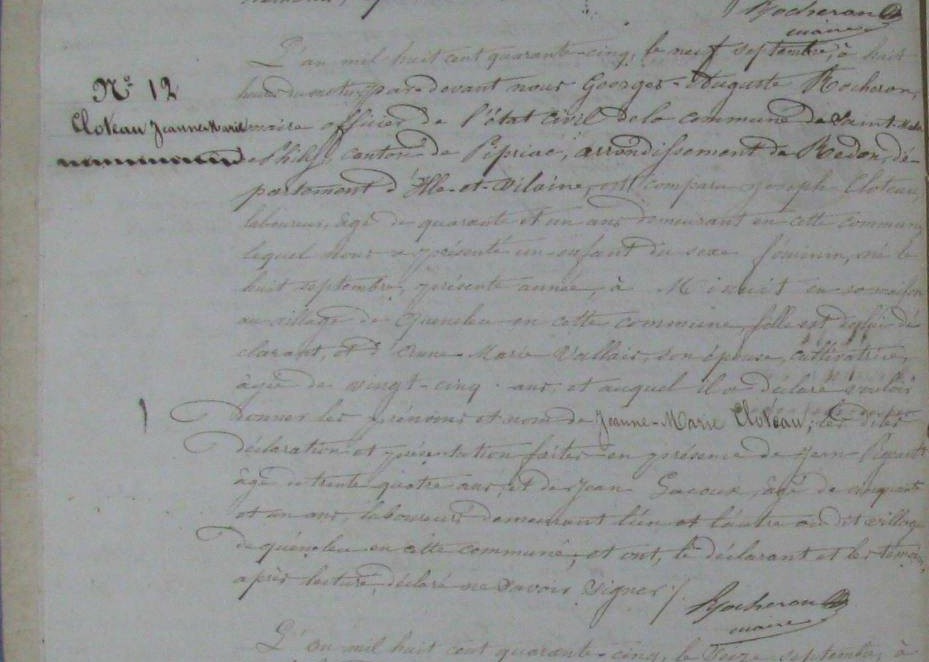 Rocheron
maire
L'an mil huit cent quarante-cinq, le neuf septembre, à huit
heures du matin, par devant nous Georges-Auguste Rocheron,
Nº 12
Cloteau Jeanne-Marie
maire officier de l'état civil de la commune de Saint-
canton de Pipriac, arrondissement de Redon, dé-
partement d'Ille-et-Vilaine, est comparu Joseph Cloteau
laboureur, âgé de quarante et un ans demeurant en cette commune,
lequel nous a présenté un enfant du sexe féminin, né le
huit septembre, présente année, à Minuit en sa maison
au village de Quéneleu en cette commune, fille est de lui dé-
clarant, et d' Anne-Marie Vallais, son épouse, cultivatrice,
âgée de vingt-cinq ans, et auquel il a déclaré vouloir
donner les prénoms et nom de Jeanne-Marie Cloteau; les dites
déclaration et présentation faites en présence de Jean
âgé de trente quatre ans, et de Jean âgé de cinquante
et un ans, laboureurs demeurant l'un et l'autre au dit village
de quéneleu en cette commune, et ont, le déclarant et les témoins,
après lecture, déclaré ne savoir signer /
Rocheron
maire
L'an mil huit cent quarante-cinq, le seize septembre, à